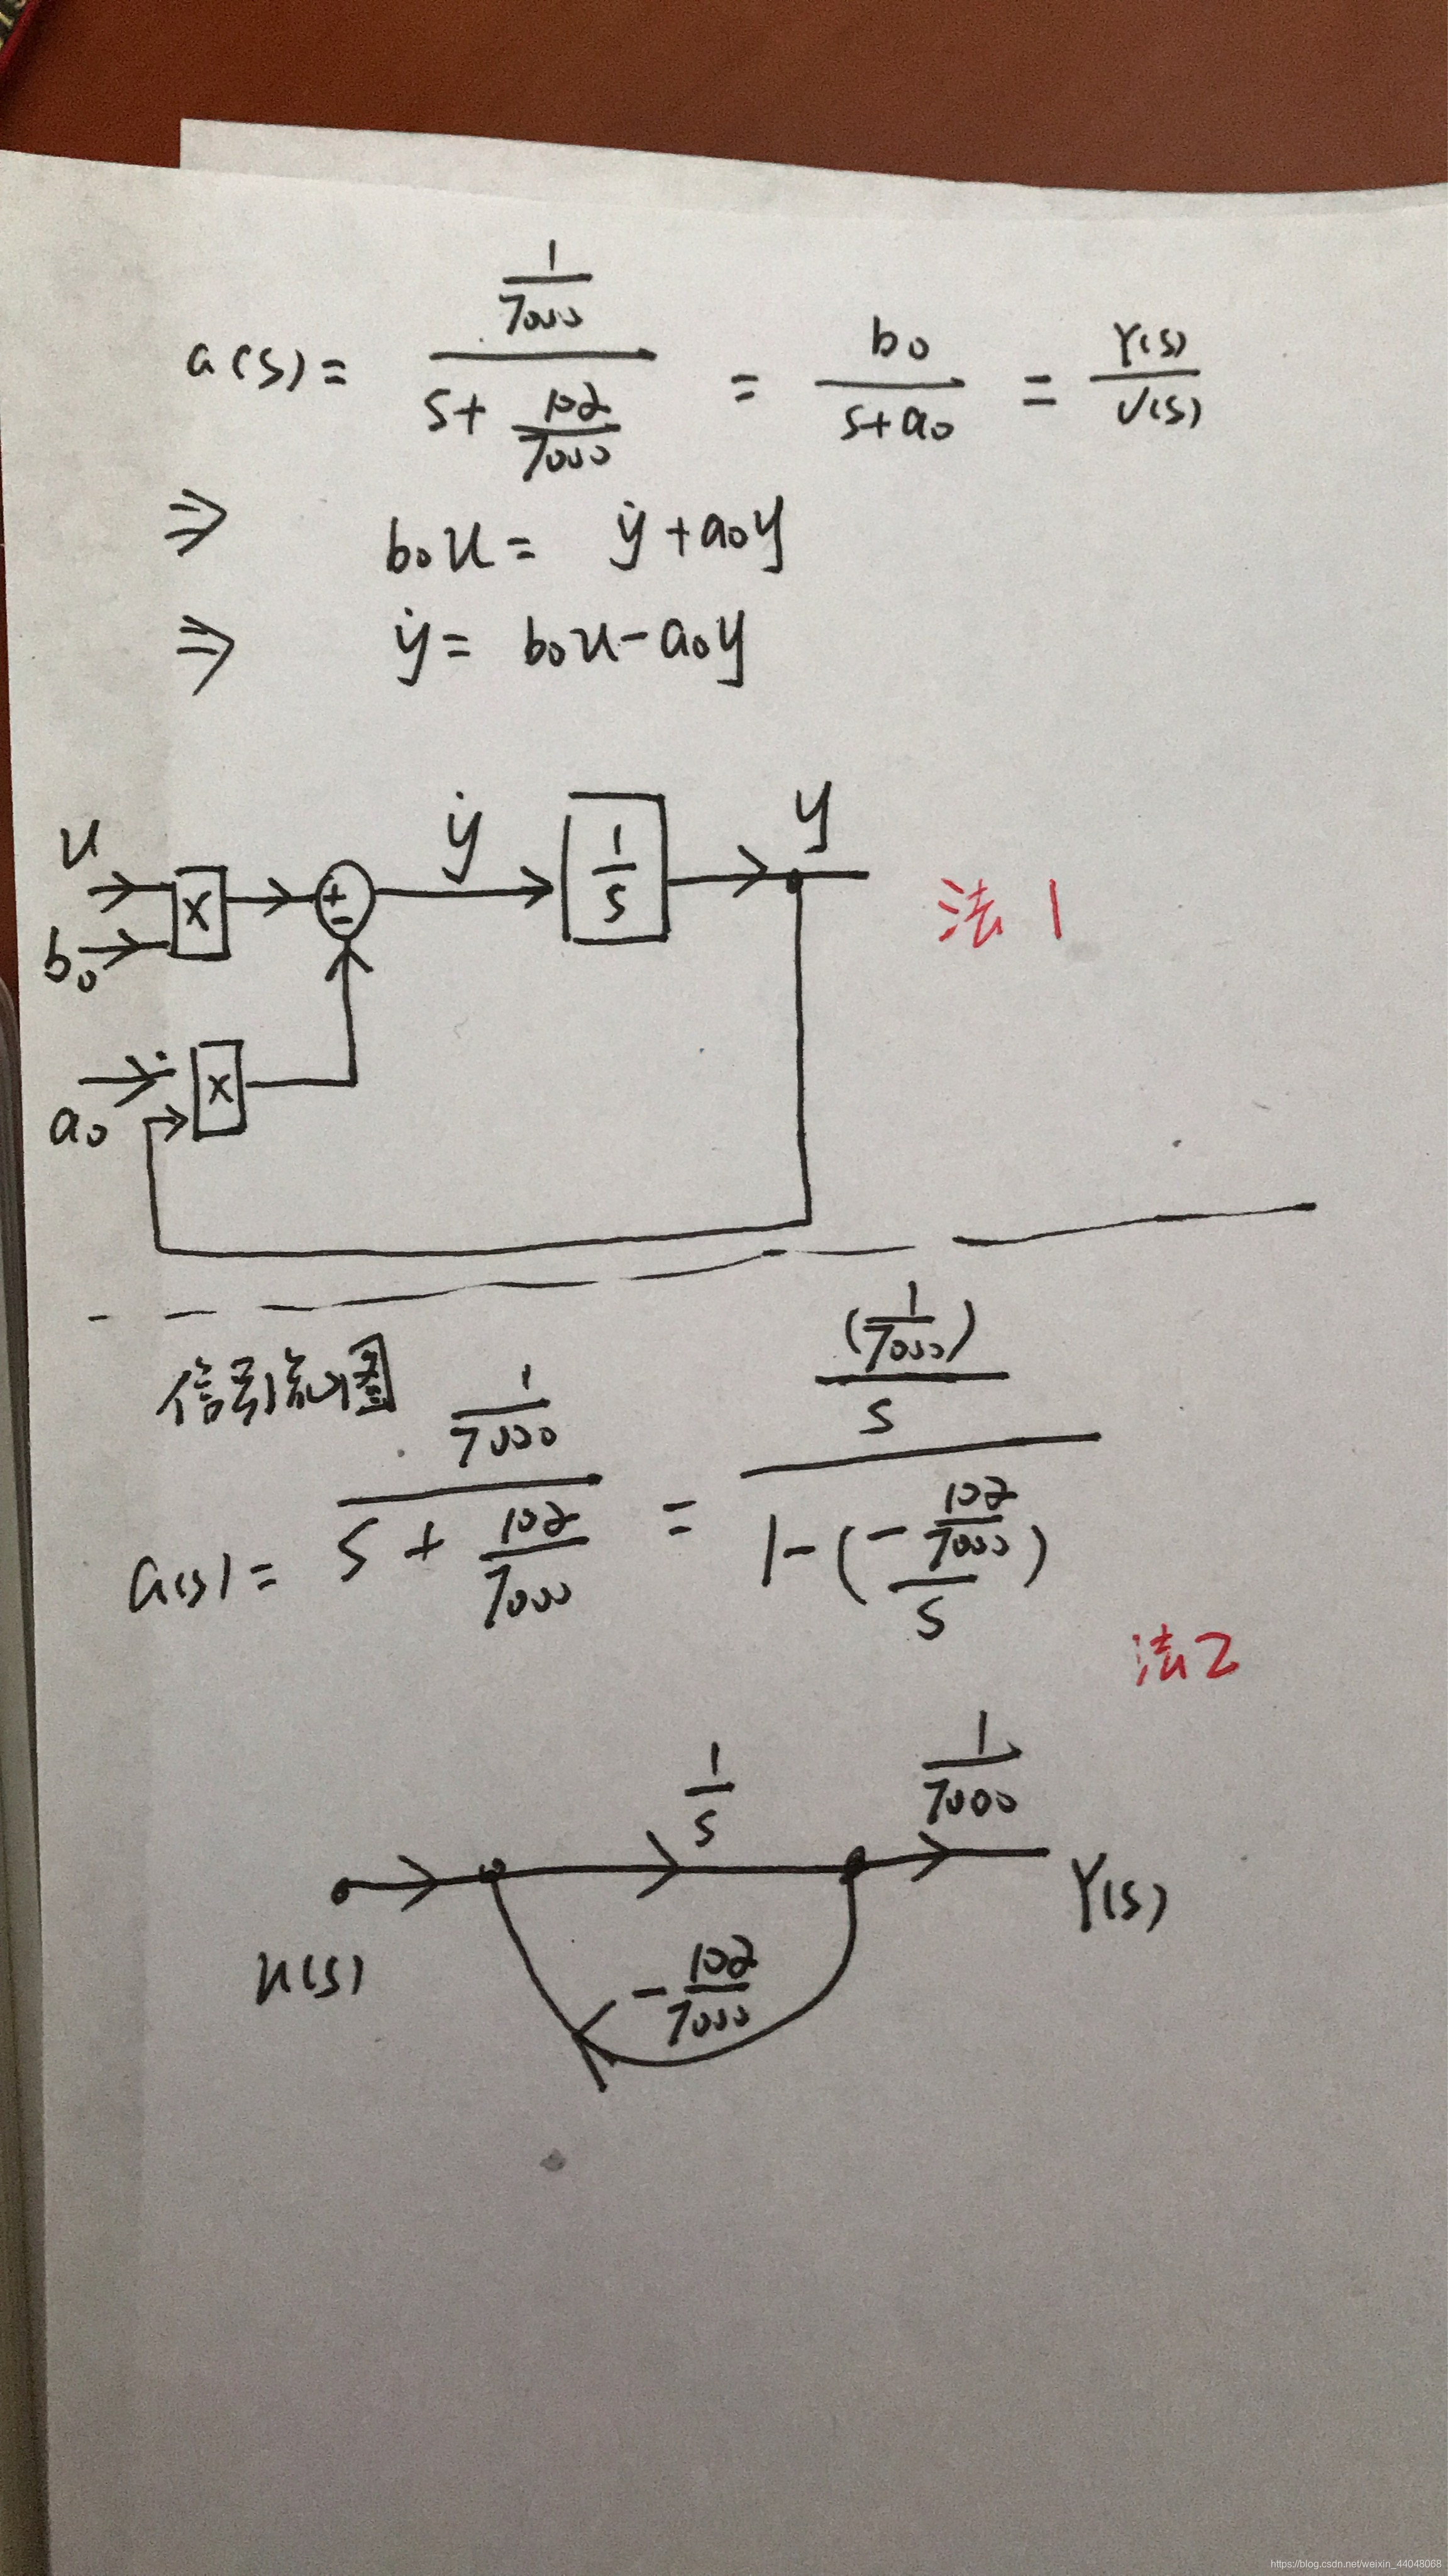 G(s) = \frac{\frac{1}{7000}}{s + \frac{102}{7000}} = \frac{b_0}{s + a_0} = \frac{Y(s)}{U(s)}
⇒ b_0 u = ẏ + a_0 y
⇒ ẏ = b_0 u - a_0 y
u
b_0
×
+
-
ẏ
\frac{1}{s}
y
法1
a_0
×
信号流图
G(s) = \frac{\frac{1}{7000}}{s + \frac{102}{7000}} = \frac{\frac{(\frac{1}{7000})}{s}}{1 - (\frac{-\frac{102}{7000}}{s})}
法2
\frac{1}{s}
\frac{1}{7000}
U(s)
Y(s)
-\frac{102}{7000}
https://blog.csdn.net/weixin_44048068